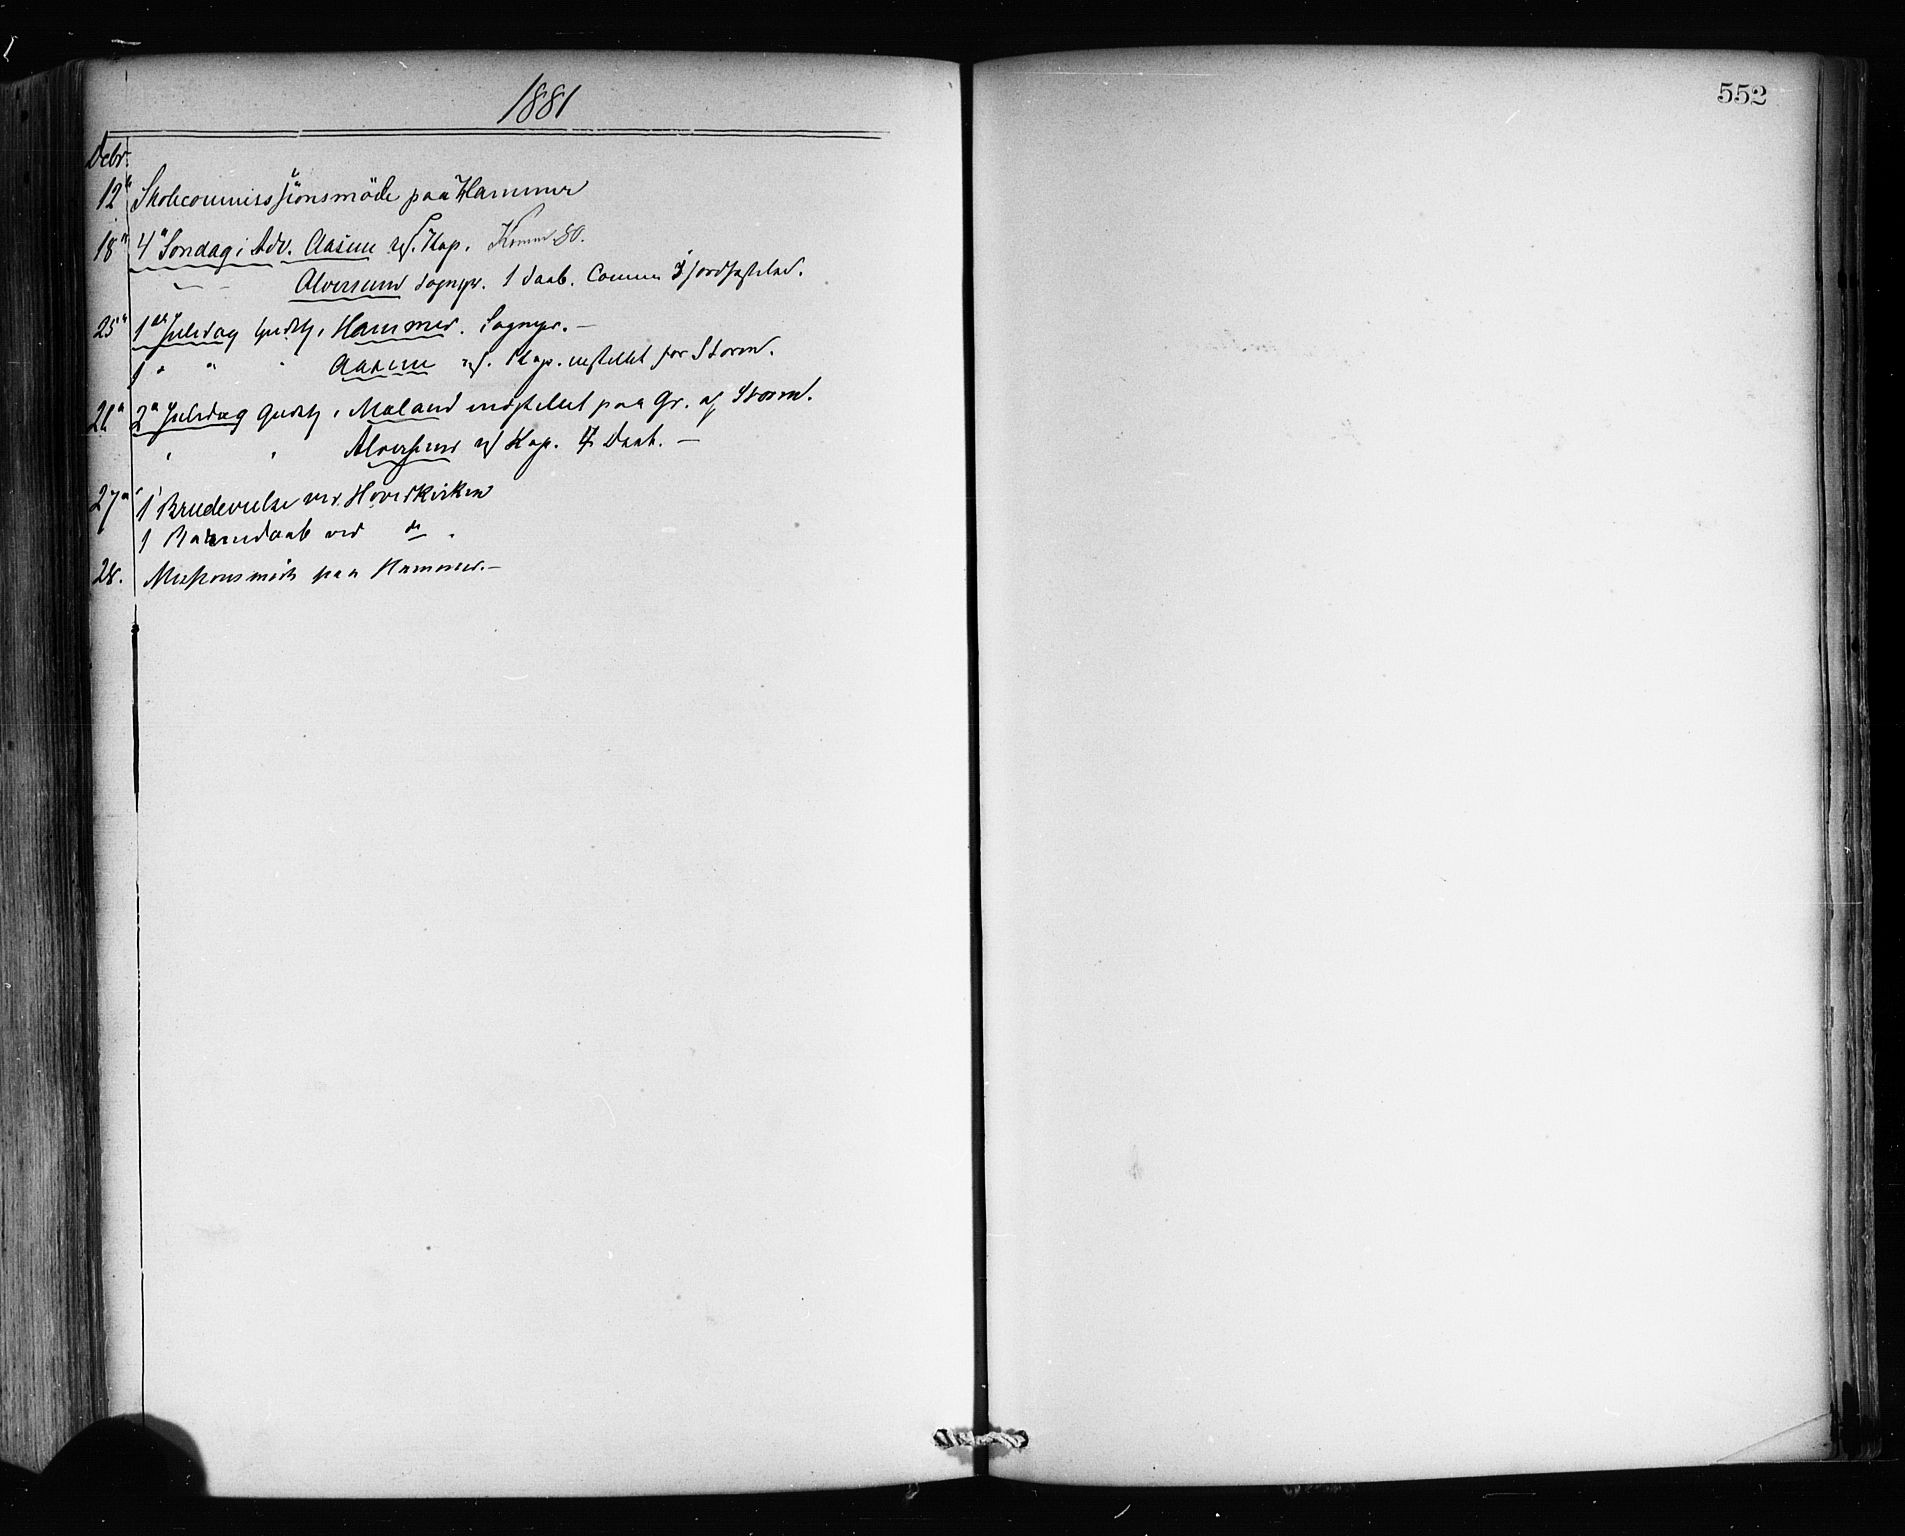 1881
552
Debr.
12" Skolecommissionsmöde paa Hammer
18" 4" Søndag i Adv. Aasene ved Kap. Komm 80.
" " Alversund Sognepr. 1 Daab. Comm 3 Jordfæstelse.
25" 1ste Juledag Gudstj. i Hammer. Sognepr. —
1 " " " Aasene ved Kap. indstillet for Storm.
26" 2" Juledag Gudstj. i Mæland indstillet paa Gr. af Storm.
" " Alversund v/ Kap. 4 Daab. —
27" 1 Brudevielse ved Hovedkirken
1 Barnedaab ved do.
28. Missionsmöde paa Hammer. —